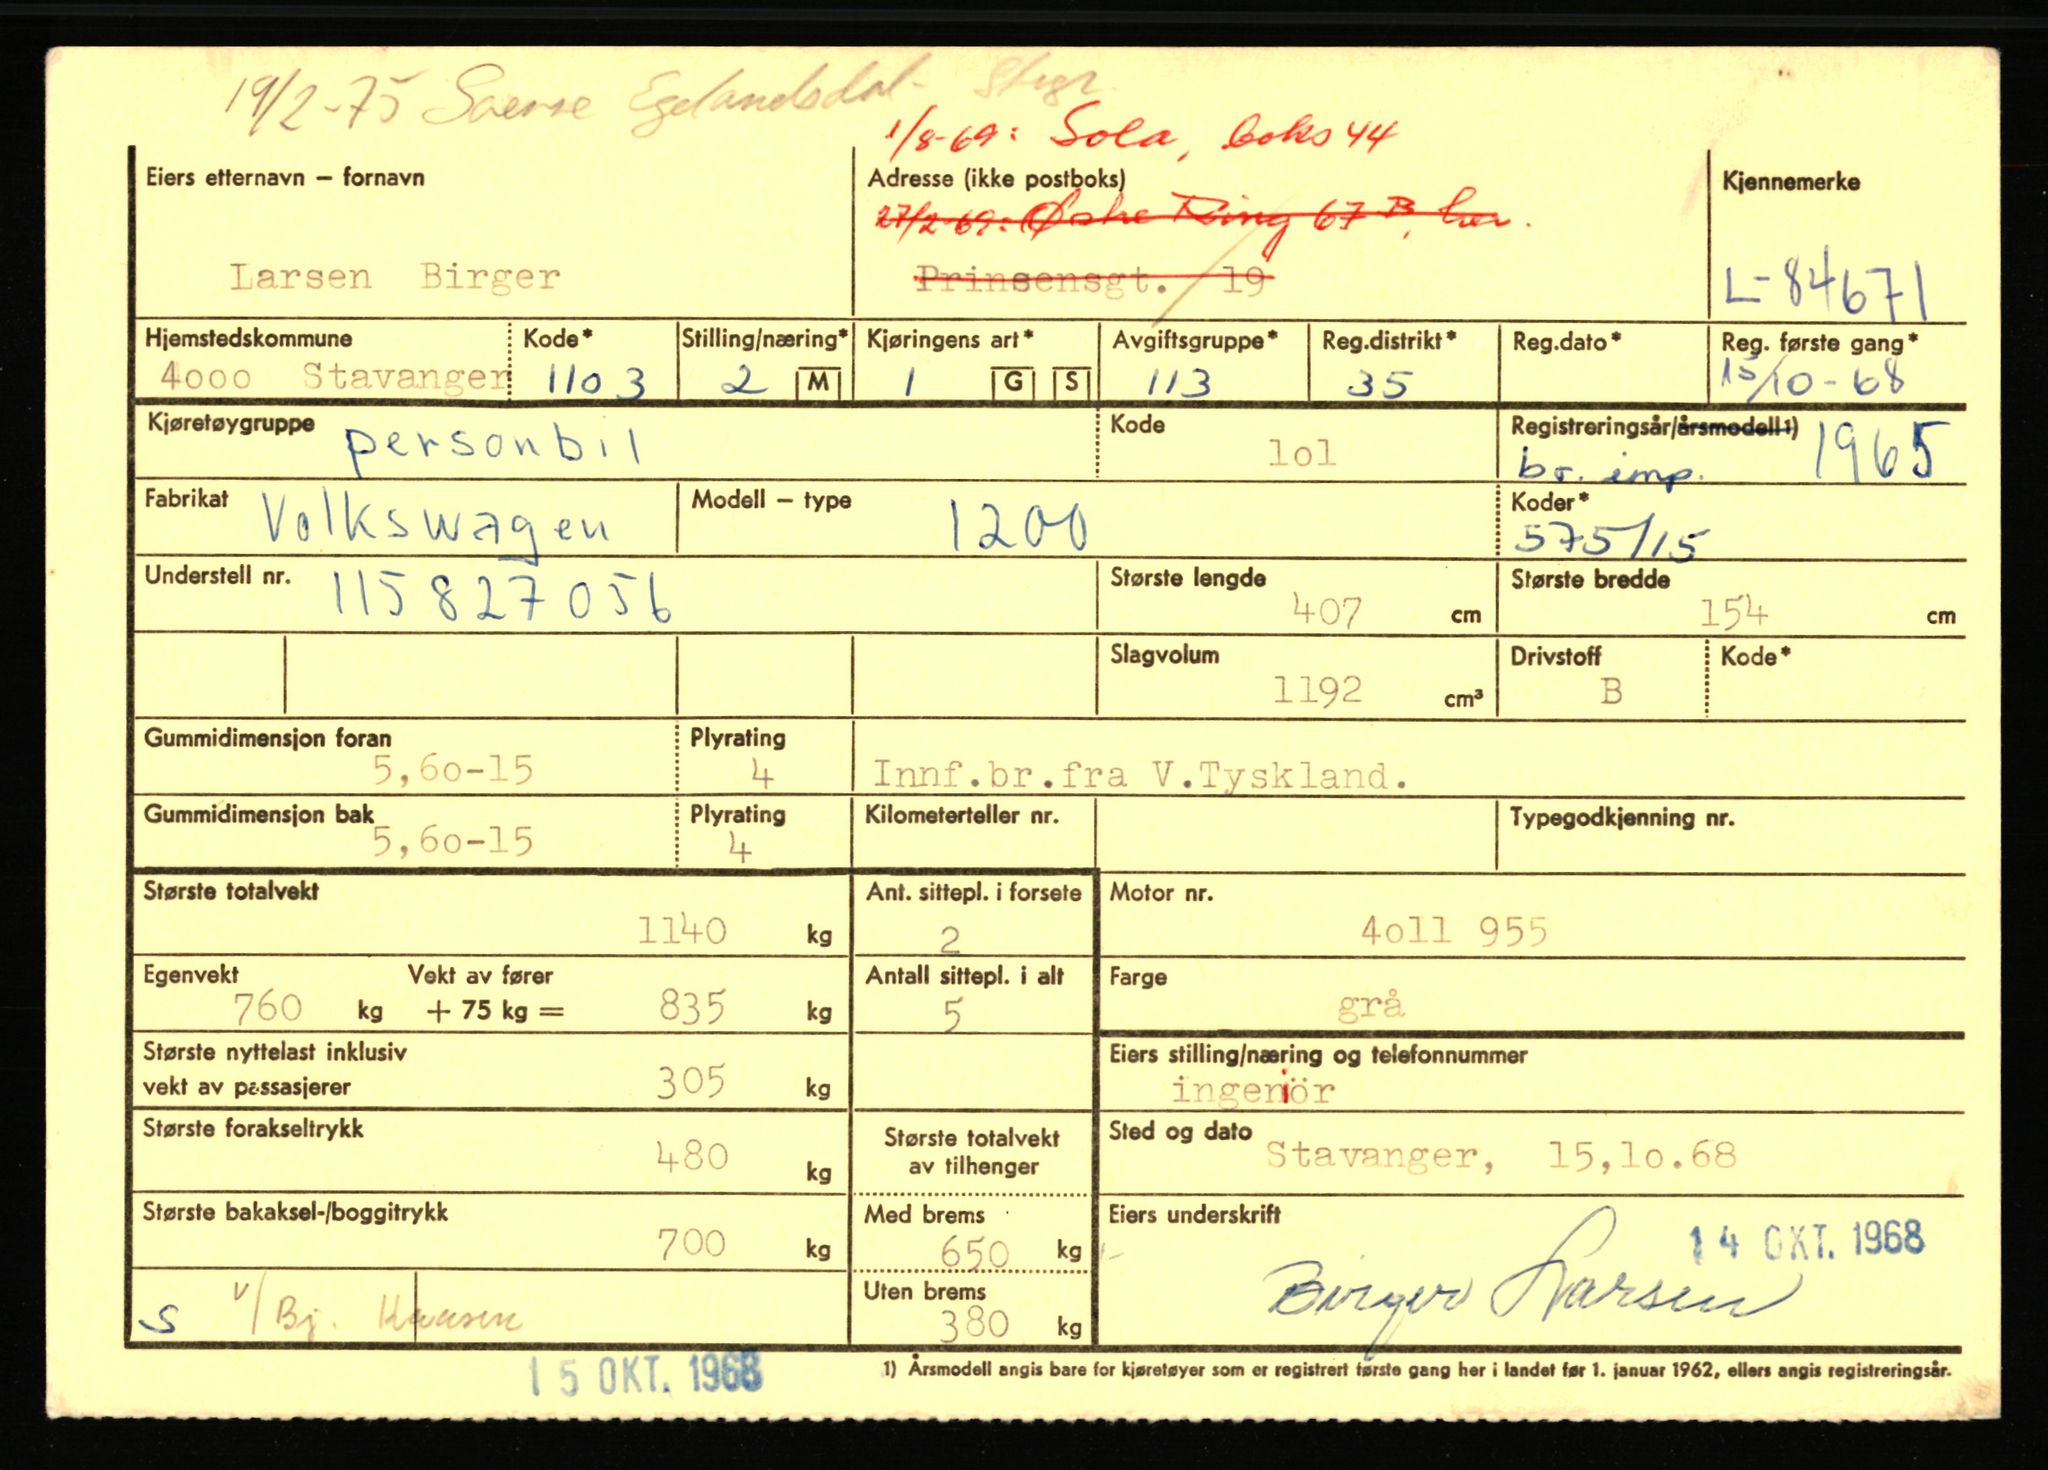 19/2-75 Sverre Egelandsdal - Stgr.
1/8-69: Sola, boks 44
Eiers etternavn – fornavn
Adresse (ikke postboks)
Kjennemerke
27/2-69: Østre Ring 67 B, her.
Larsen Birger
Prinsensgt. 19
L-84671
Hjemstedskommune Kode* Stilling/næring* Kjøringens art* Avgiftsgruppe* Reg.distrikt* Reg.dato* Reg. første gang*
4000 Stavanger 1103 2 M 1 G S 113 35 15/10-68
Kjøretøygruppe personbil Kode lol Registreringsår/årsmodell 1) 1965
br. imp.
Fabrikat Volkswagen Modell – type 1200 Koder*
575/15
Understell nr. 115827056 Største lengde Største bredde
407 cm 154 cm
Slagvolum Drivstoff Kode*
1192 cm³ B
Gummidimensjon foran Plyrating
5,6o-15 4 Innf.br.fra V.Tyskland.
Gummidimensjon bak Plyrating Kilometerteller nr. Typegodkjenning nr.
5,6o-15 4
Største totalvekt Ant. sittepl. i forsete Motor nr.
1140 kg 2 4o11 955
Egenvekt Vekt av fører Antall sittepl. i alt Farge
760 kg + 75 kg = 835 kg 5 grå
Største nyttelast inklusiv Eiers stilling/næring og telefonnummer
vekt av passasjerer 305 kg ingeniör
Største forakseltrykk Største totalvekt Sted og dato
480 kg av tilhenger Stavanger, 15,1o.68
Største bakaksel-/boggitrykk Med brems Eiers underskrift
700 kg 650 kg 14 OKT. 1968
Uten brems Birger Larsen
S v/Bj. 380 kg
15 OKT. 1968
1) Årsmodell angis bare for kjøretøyer som er registrert første gang her i landet før 1. januar 1962, ellers angis registreringsår.